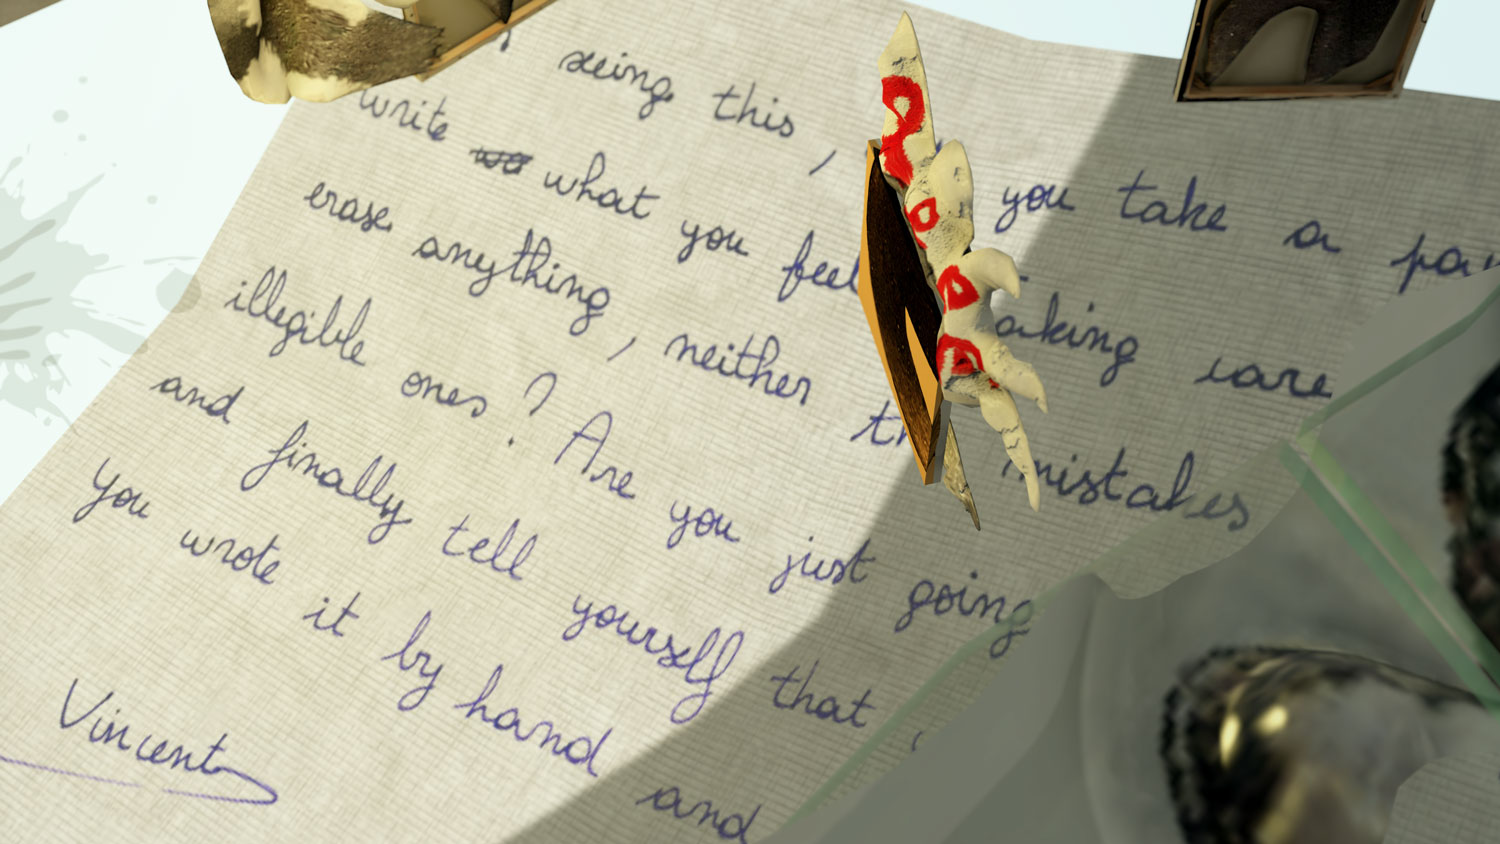 seing this, you take a
write what you feel aking care
erase anything, neither mistakes
illegible ones? Are you just going
and finally tell yourself that,
you wrote it by hand and
Vincent